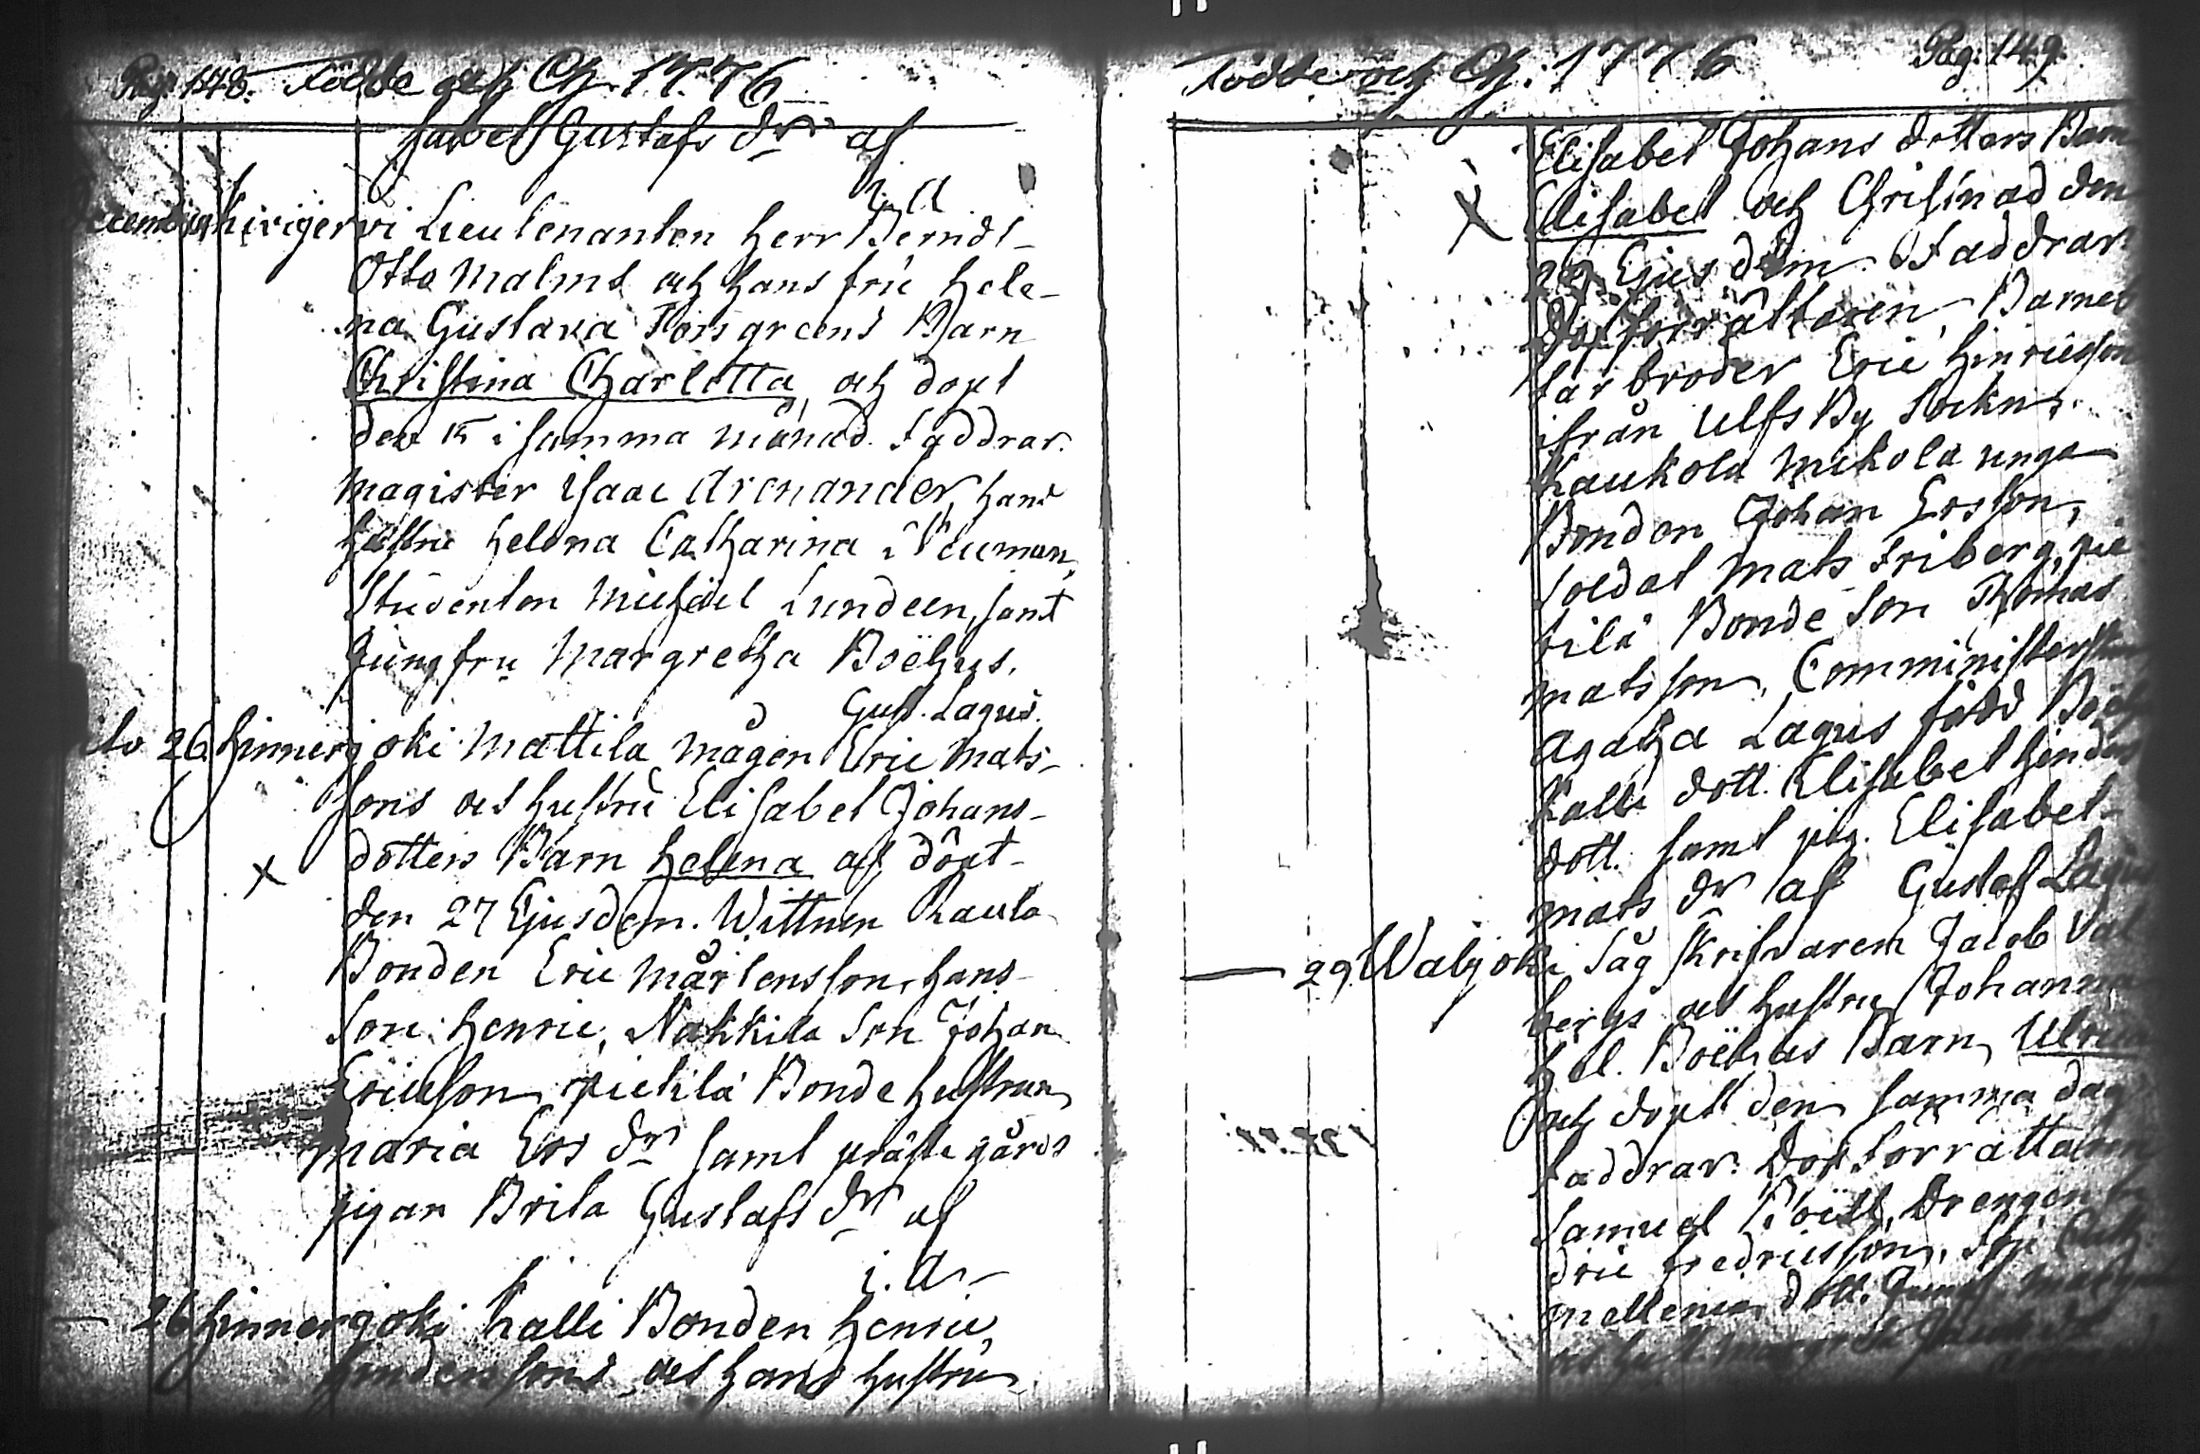 Pag. 148. Födde och Ch. 1776
sabet Gustafs dr af
I. A
December Kirijervi Lieutenanten Herr Berndt
Otto Malms och hans fru Hele-
na Gustava Forsgreens Barn
Christina Charlotta, och döpt
den 15 i samma månad. Faddrar.
Magister Isaac Arenander, hans
hustru Helena Catharina Neuman,
Studenten Michael Lundeen, samt
Jungfru Margretha Boëlius.
Gust. Lagus.
dito 26 Hinnerjoki Mattila Mågen Eric Mats-
sons och hustru Elisabet Johans-
dotters Barn Helena och döpt
den 27 Ejusdem. Wittnen Raula
Bonden Eric Mårtensson, hans
Son Henric, Nahkila Son Johan
Ericsson, Pietilä Bonde hustrun
Maria Ers dr samt prästegårds
pigan Brita Gustafs dr af
I. A.
— 26 Hinnerjoki Kalli Bonden Henric
Hindersons och hans hustru
Födde och Ch. 1776 Pag. 149.
Elisabet Johans dotters Barn
Elisabet och Christnad den
29 Ejusdem. Faddrar
Dopförrättaren, Barnets
farbroder Eric Hinricsson
ifrån Ulfsby Sockn,
Kaukola Mikola unga
Bonden Johan Ersson,
Soldat Mats Friberg, Pie-
tilä Bonde Son Thomas
Matsson, Ministers
Agatha Lagus född
Kalli dott. Elisabet Hinders
dott. samt pig. Elisabet
Mats dr af Gustaf Lagus
— 29 Walijoki Såg Skrifvaren Jacob
bergs och hustru Johanna
Hel. Boëlius Barn, Ulrica
och döpt den samma dag
Faddrar: Dopförrättaren
Samuel Drengen
dric Fredricsson, Son
dott. Jungf.